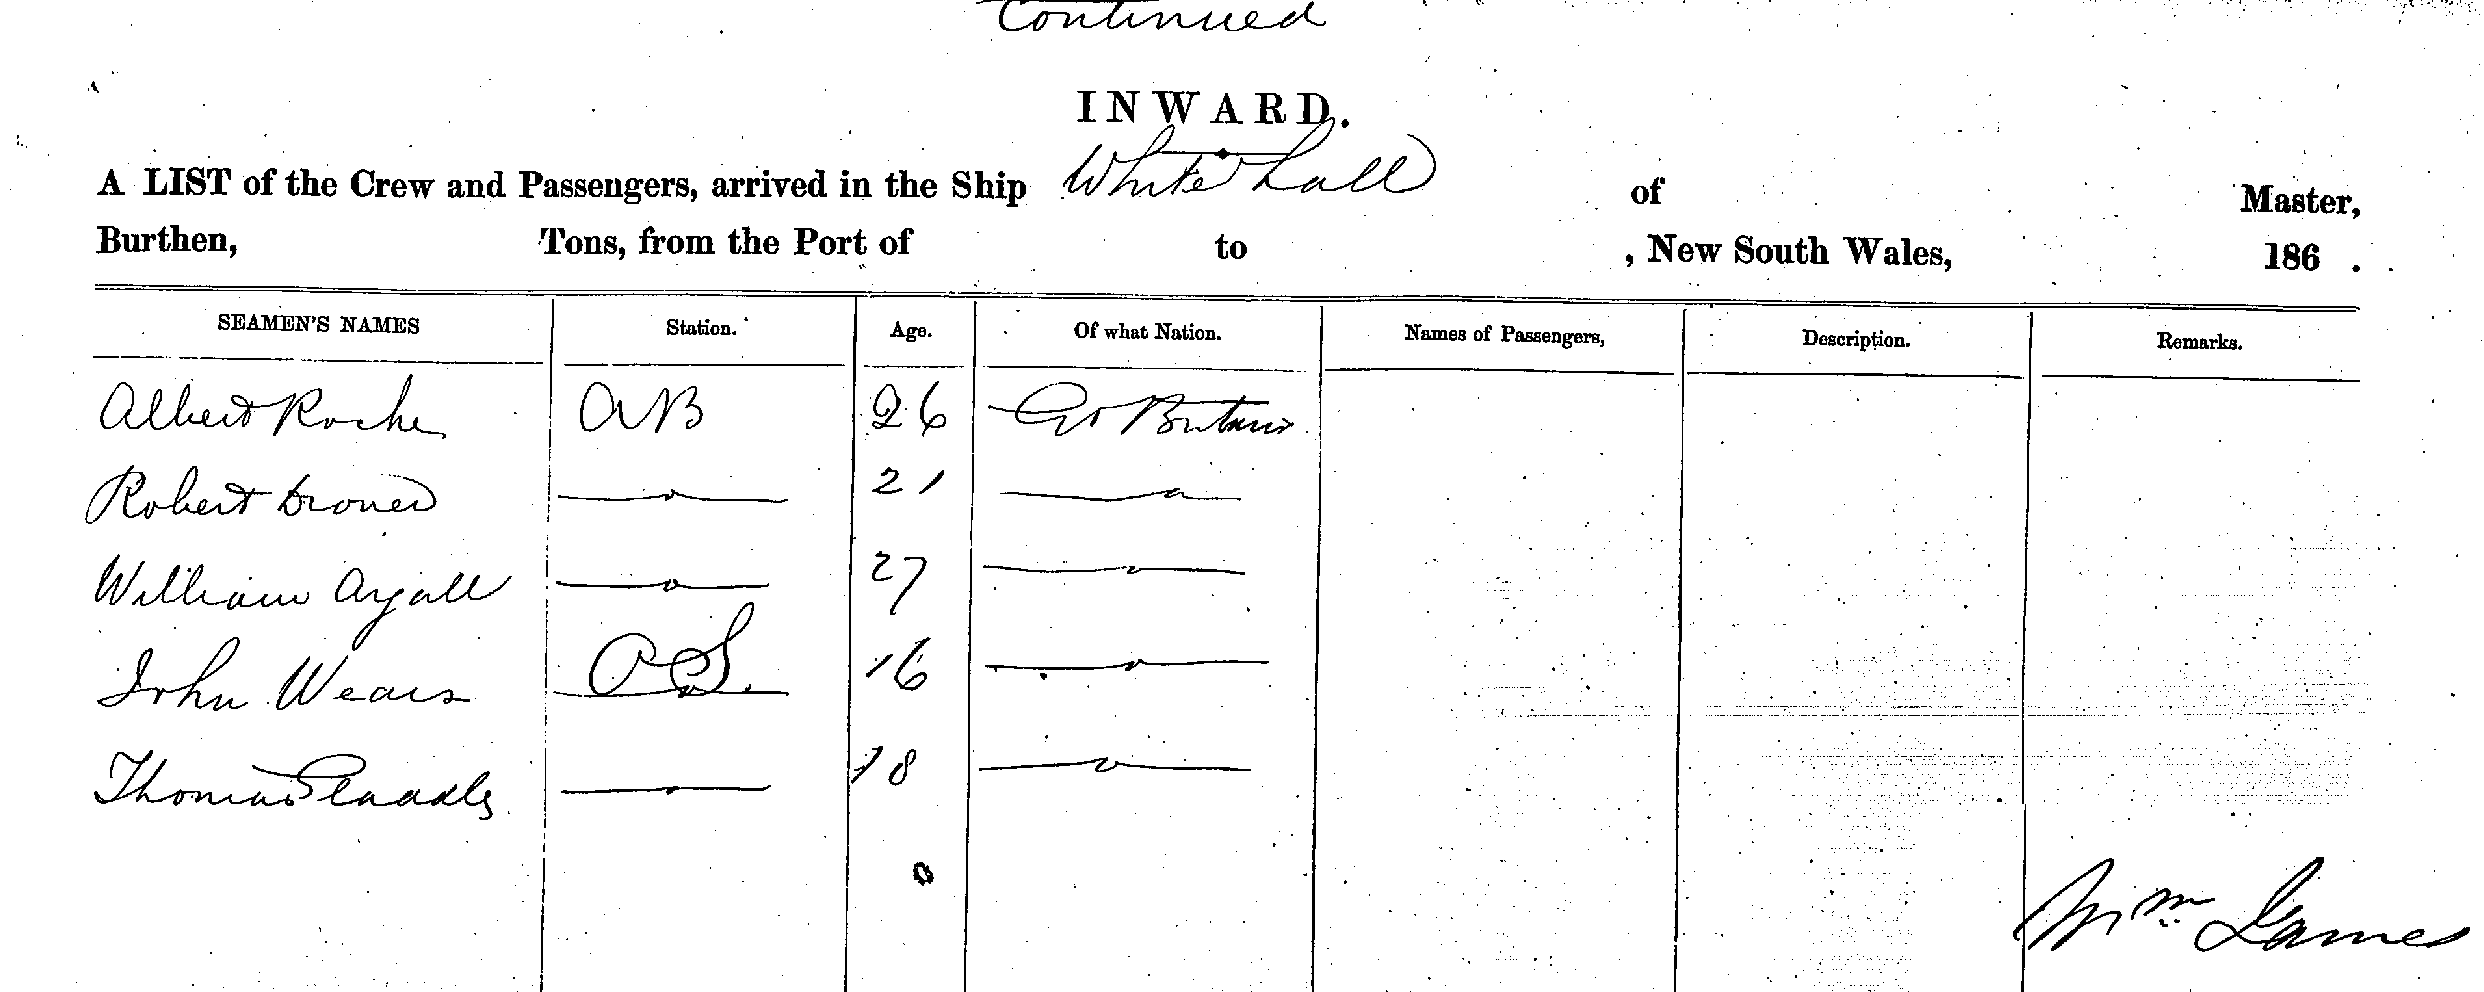 Continued
INWARD.
A LIST of the Crew and Passengers, arrived in the Ship White hall of Master,
Burthen, Tons, from the Port of to , New South Wales, 186 .
SEAMEN'S NAMES Station. Age. Of what Nation. Names of Passengers, Description. Remarks.
Albert Roche AB 26 Gt Britain
Robert 21
William Argall 27
John Wears OS. 16
Thomas 18
Wm James